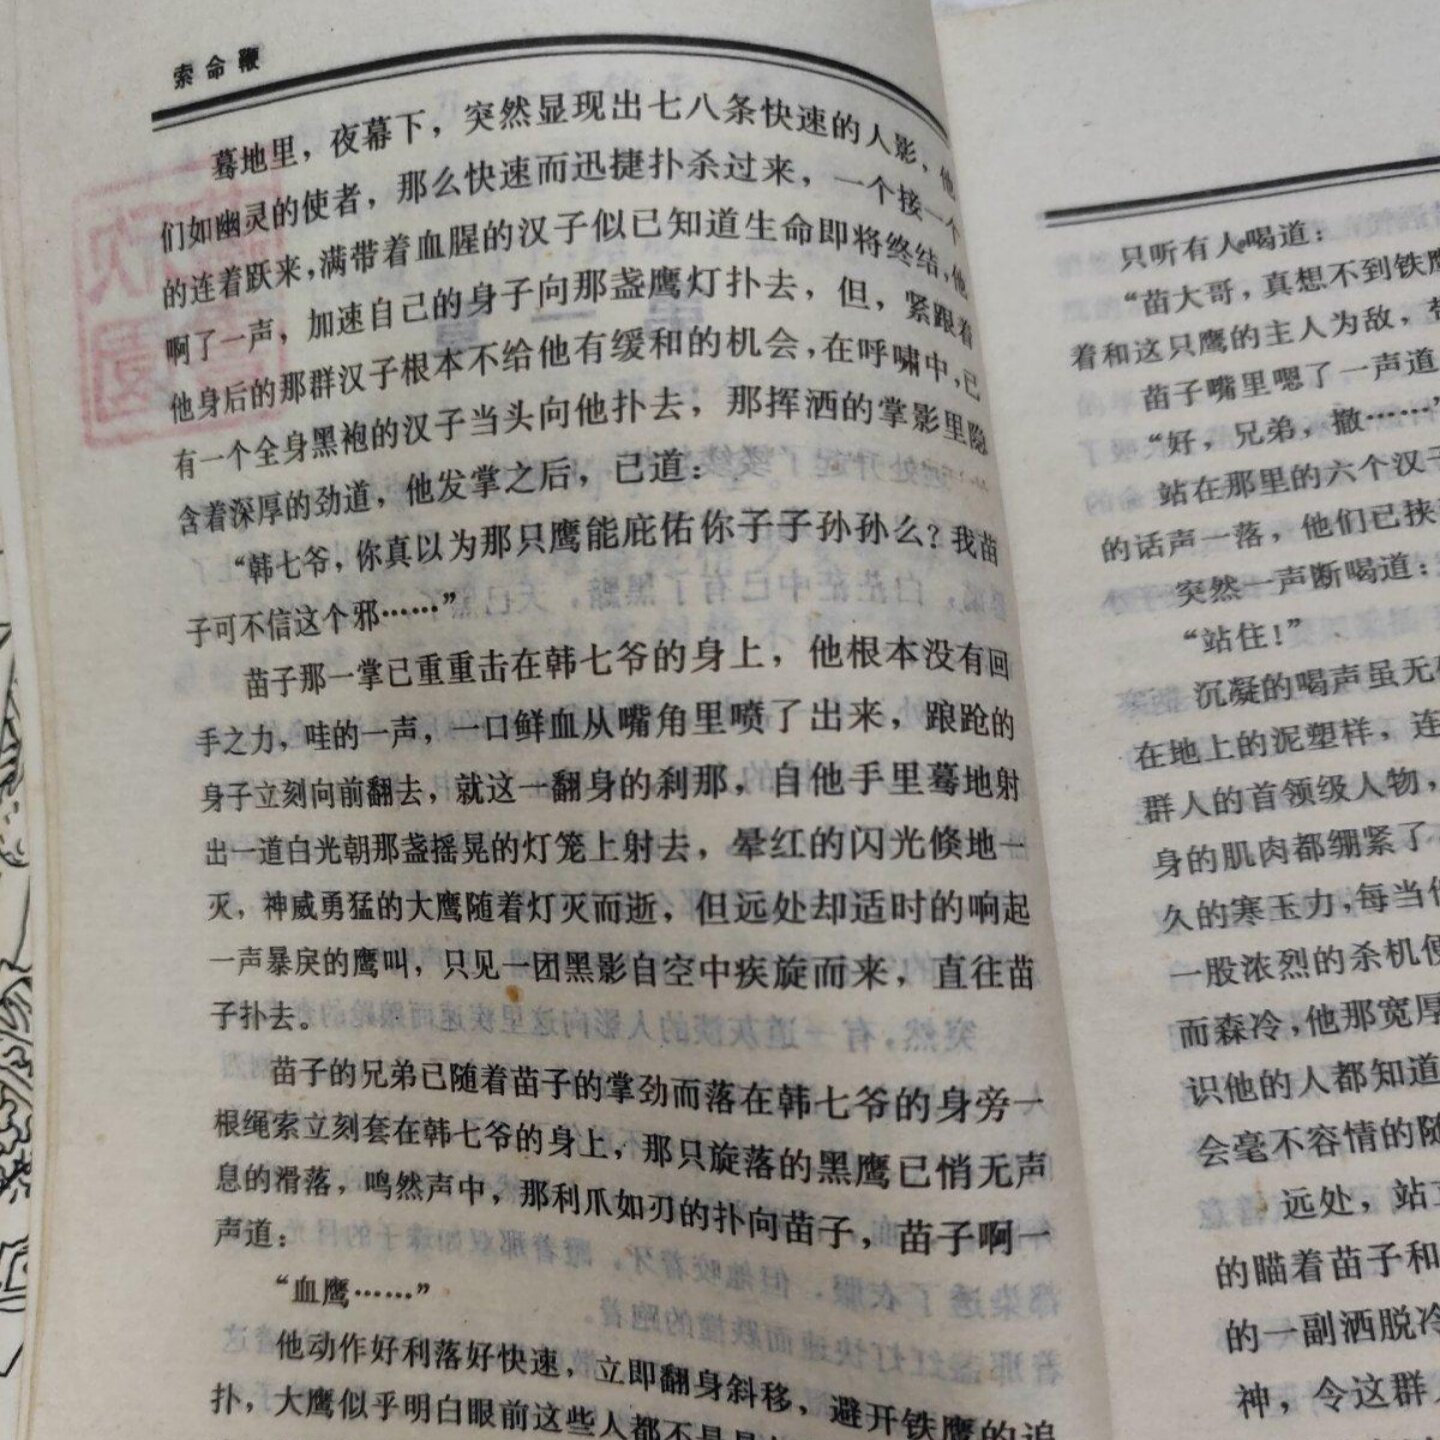 索命鞭
蓦地里，夜幕下，突然显现出七八条快速的人影，他
们如幽灵的使者，那么快速而迅捷扑杀过来，一个接一个
的连着跃来，满带着血腥的汉子似已知道生命即将终结，他
啊了一声，加速自己的身子向那盏鹰灯扑去，但，紧跟着
他身后的那群汉子根本不给他有缓和的机会，在呼啸中，已
有一个全身黑袍的汉子当头向他扑去，那挥洒的掌影里隐
含着深厚的劲道，他发掌之后，已道：
“韩七爷，你真以为那只鹰能庇佑你子子孙孙么？我苗
子可不信这个邪……”
苗子那一掌已重重击在韩七爷的身上，他根本没有回
手之力，哇的一声，一口鲜血从嘴角里喷了出来，踉跄的
身子立刻向前翻去，就这一翻身的刹那，自他手里蓦地射
出一道白光朝那盏摇晃的灯笼上射去，晕红的闪光倏地一
灭，神威勇猛的大鹰随着灯灭而逝，但远处却适时的响起
一声暴戾的鹰叫，只见一团黑影自空中疾旋而来，直往苗
子扑去。
苗子的兄弟已随着苗子的掌劲而落在韩七爷的身旁一
根绳索立刻套在韩七爷的身上，那只旋落的黑鹰已悄无声
息的滑落，鸣然声中，那利爪如刃的扑向苗子，苗子啊一
声道：
“血鹰……”
他动作好利落好快速，立即翻身斜移，避开铁鹰的追
扑，大鹰似乎明白眼前这些人都不是
只听有人喝道：
“苗大哥，真想不到铁鹰
着和这只鹰的主人为敌，
苗子嘴里嗯了一声道
“好，兄弟，撤……”
站在那里的六个汉子
的话声一落，他们已挟
突然一声断喝道：
“站住！”
沉凝的喝声虽无
在地上的泥塑样，连
群人的首领级人物，
身的肌肉都绷紧了
久的寒玉力，每当他
一股浓烈的杀机便
而森冷，他那宽厚
识他的人都知道
会毫不容情的随
远处，站立
的瞄着苗子和
的一副洒脱冷
神，令这群人